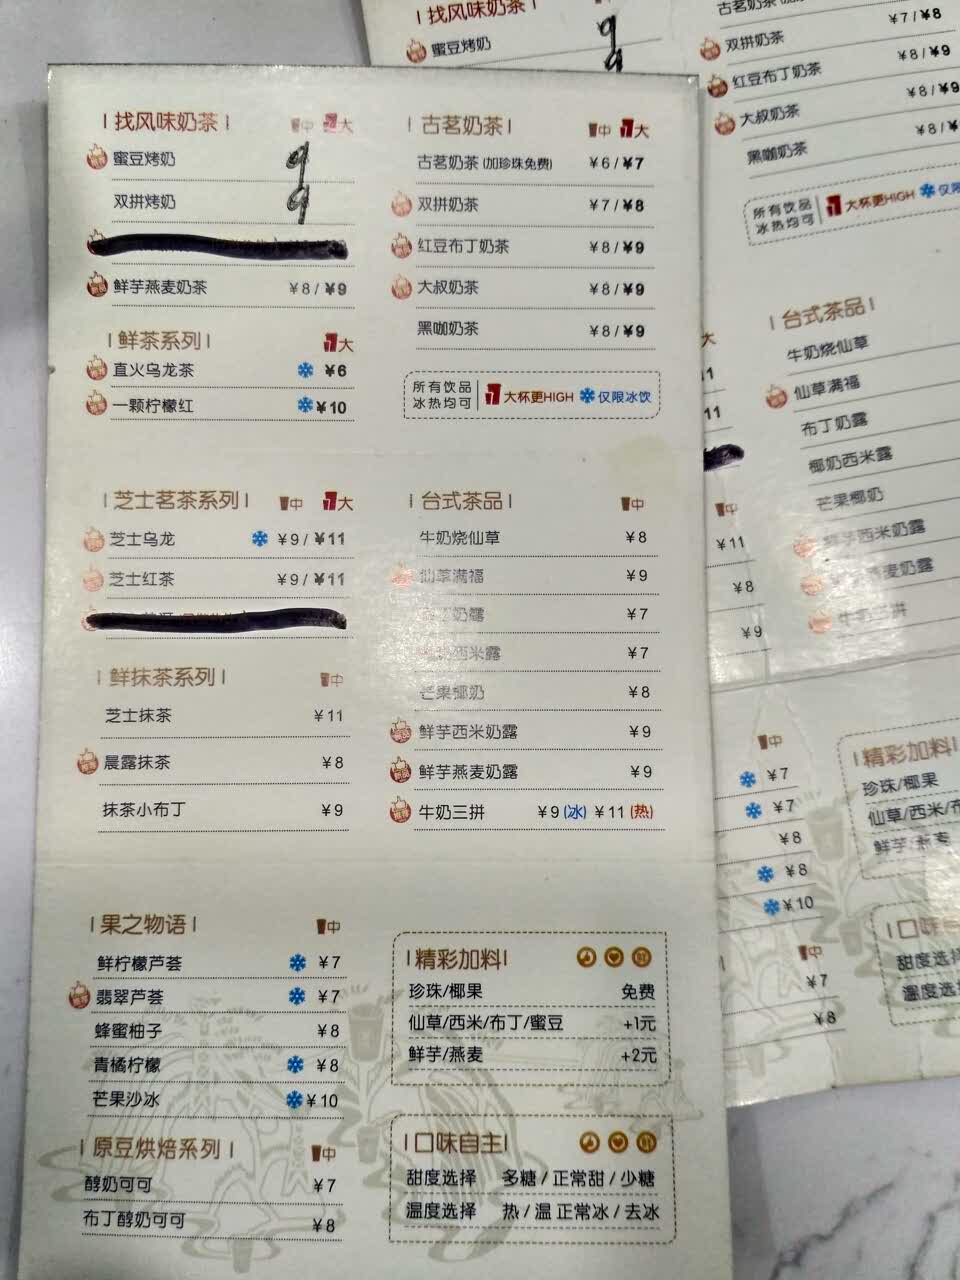 找风味奶茶 中 大
蜜豆烤奶 9
双拼烤奶 9
鲜芋燕麦奶茶 ¥8/¥9
鲜茶系列 大
直火乌龙茶 ¥6
一颗柠檬红 ¥10
古茗奶茶 中 大
古茗奶茶(加珍珠免费) ¥6/¥7
双拼奶茶 ¥7/¥8
红豆布丁奶茶 ¥8/¥9
大叔奶茶 ¥8/¥9
黑咖奶茶 ¥8/¥9
所有饮品
冰热均可
大杯更HIGH 仅限冰饮
芝士茗茶系列 中 大
芝士乌龙 ¥9/¥11
芝士红茶 ¥9/¥11
鲜抹茶系列 中
芝士抹茶 ¥11
晨露抹茶 ¥8
抹茶小布丁 ¥9
台式茶品 中
牛奶烧仙草 ¥8
仙草满福 ¥9
奶露 ¥7
西米露 ¥7
芒果椰奶 ¥8
鲜芋西米奶露 ¥9
鲜芋燕麦奶露 ¥9
牛奶三拼 ¥9(冰) ¥11(热)
果之物语 中
鲜柠檬芦荟 ¥7
翡翠芦荟 ¥7
蜂蜜柚子 ¥8
青橘柠檬 ¥8
芒果沙冰 ¥10
原豆烘焙系列 中
醇奶可可 ¥7
布丁醇奶可可 ¥8
精彩加料
珍珠/椰果 免费
仙草/西米/布丁/蜜豆 +1元
鲜芋/燕麦 +2元
口味自主
甜度选择 多糖/正常甜/少糖
温度选择 热/温 正常冰/去冰
找风味奶茶
蜜豆烤奶 9
9
¥7/¥8
双拼奶茶 ¥8/¥9
红豆布丁奶茶 ¥8/¥9
大叔奶茶 ¥8/¥
黑咖奶茶
所有饮品
冰热均可
大杯更HIGH 仅限
台式茶品
牛奶烧仙草
仙草满福
布丁奶露
椰奶西米露
芒果椰奶
鲜芋西米奶露
燕麦奶露
牛奶三拼
大
11
11
中
¥11
¥8
¥9
中
¥7
¥7
¥8
¥8
¥10
中
¥7
¥8
精彩加料
珍珠/椰果
仙草/西米/布
鲜芋/燕麦
口味
甜度选择
温度选择